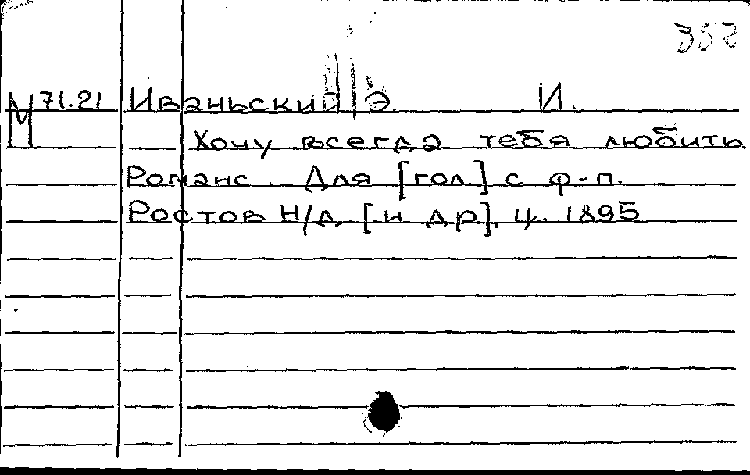 352
М 71.21 Иваньский Э. И.
Хочу всегда тебя любить
Романс. Для [гол] с ф-п.
Ростов Н/Д. [и др], ц. 1895